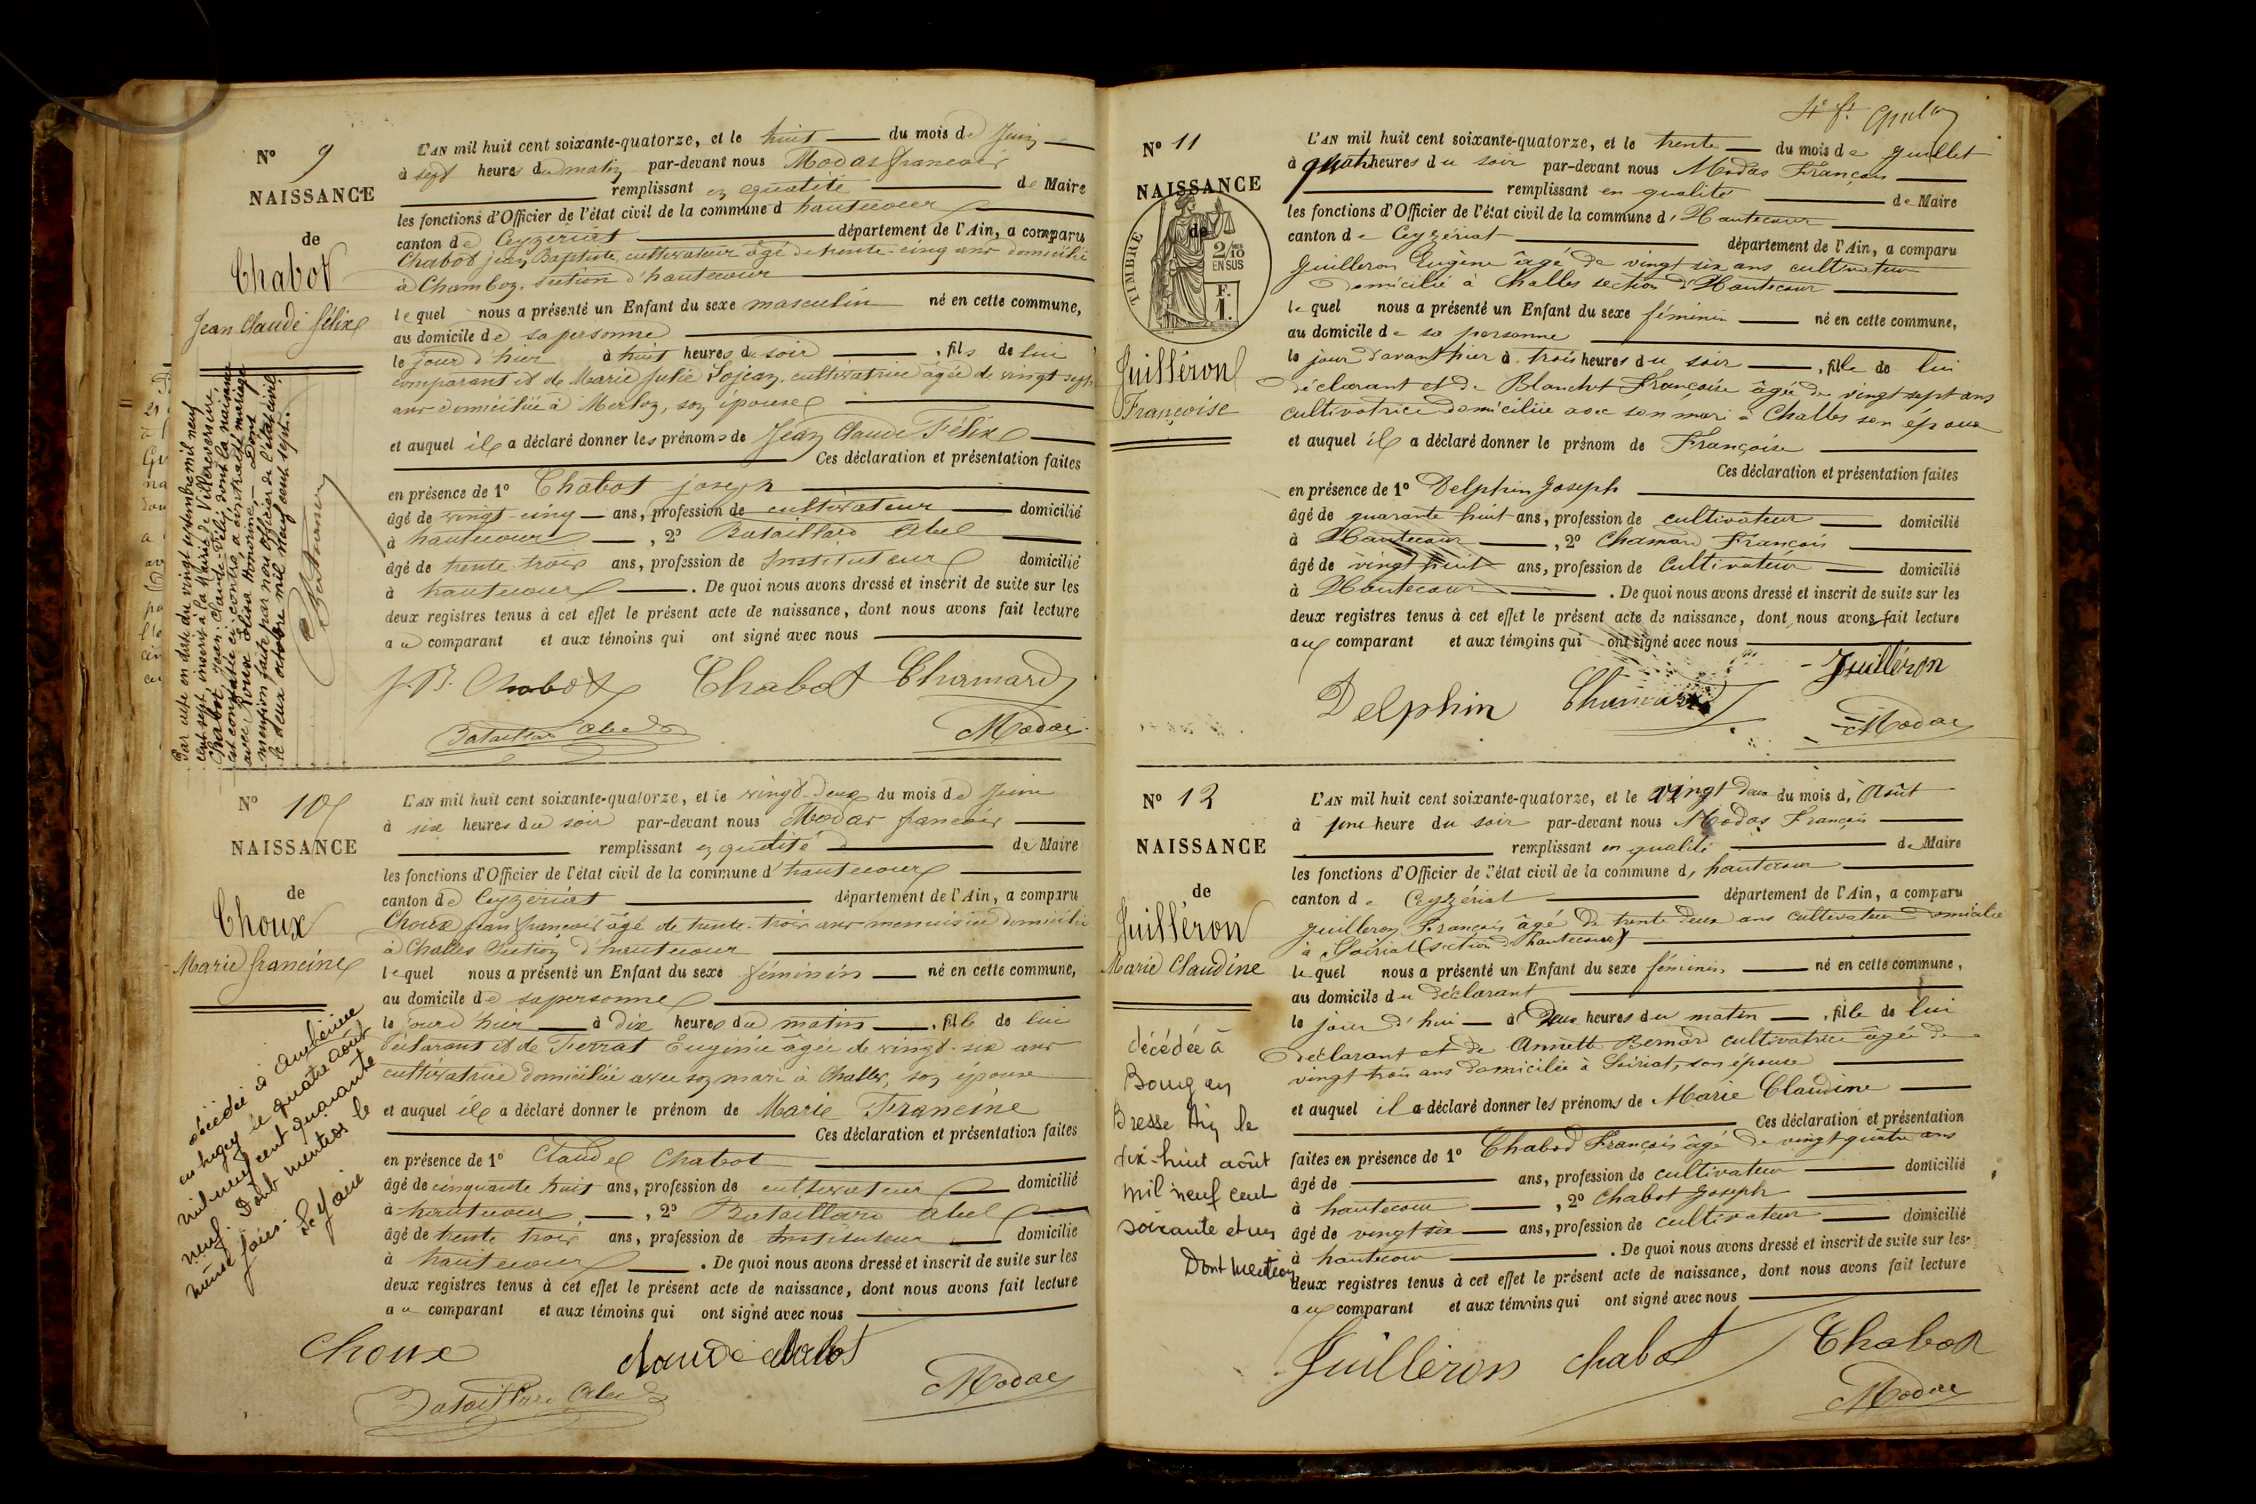 N° 9
NAISSANCE
de
Chabot
Jean Claude félix
L'AN mil huit cent soixante-quatorze, et le huit du mois de Juin
à sept heures du matin par-devant nous Modas francois
remplissant en qualité de Maire
les fonctions d'Officier de l'état civil de la commune d hautecour
canton de Ceyzériat département de l'Ain, a comparu
Chabot jean Baptiste, cultivateur âgé de trente-cinq ans domicilié
à Chamboz, section d'hautecour
lequel nous a présenté un Enfant du sexe masculin né en cette commune,
au domicile de sa personne
le jour d'hier à huit heures du soir, fils de lui
comparant et de Marie Julie Lojean, cultivatrice âgée de vingt sept
ans domiciliée à Merloz, son épouse
et auquel il a déclaré donner les prénoms de Jean Claude Félix
Ces déclaration et présentation faites
en présence de 1° Chabot joseph
âgé de vingt-cinq ans, profession de cultivateur domicilié
à hautecour, 2° Bataillard Abel
âgé de trente-trois ans, profession de Instituteur domicilié
à hautecour. De quoi nous avons dressé et inscrit de suite sur les
deux registres tenus à cet effet le présent acte de naissance, dont nous avons fait lecture
au comparant et aux témoins qui ont signé avec nous
J. B. Chabot Chabot Chamard
Bataillard Abel Modas
Par acte en date du vingt septembre mil neuf
cent sept, inscrit à la Mairie de Villereversure,
Chabot, Jean-Claude-Félix, dont la naissance
est constatée ci-contre, a contracté mariage
avec Rousse Elisa Honorine, Dont
mention faite par nous officier de l'état civil,
le deux octobre mil neuf cent sept.
N° 10
NAISSANCE
de
Choux
Marie francine
L'AN mil huit cent soixante-quatorze, et le vingt-deux du mois de Juin
à six heures du soir par-devant nous Modas francois
remplissant en qualité de Maire
les fonctions d'Officier de l'état civil de la commune d'hautecour
canton de Ceyzériat département de l'Ain, a comparu
Choux jean francois âgé de trente-trois ans menuisier domicilié
à Challes Section d'hautecour
lequel nous a présenté un Enfant du sexe féminin né en cette commune,
au domicile de sa personne
le jour d'hier à dix heures du matin, fille de lui
déclarant et de Ferrat Eugénie âgée de vingt-six ans
cultivatrice domiciliée avec son mari à Challes, son épouse
et auquel il a déclaré donner le prénom de Marie Francine
Ces déclaration et présentation faites
en présence de 1° Claude Chabot
âgé de cinquante huit ans, profession de cultivateur domicilié
à hautecour, 2° Bataillard Abel
âgé de trente trois ans, profession de Instituteur domicilié
à hautecour. De quoi nous avons dressé et inscrit de suite sur les
deux registres tenus à cet effet le présent acte de naissance, dont nous avons fait lecture
au comparant et aux témoins qui ont signé avec nous
Choux Claude chabot
Bataillard Abel Modas
décédée à Ambérieu
en bugey le quatre août
mil neuf cent quarante
neuf. Dont mention le
même jour. Le Maire
N° 11
NAISSANCE
de
TIMBRE
2/10 EN SUS
F. 1.
Guilléron
Françoise
L'AN mil huit cent soixante-quatorze, et le trente du mois de Juillet
à quatre heures du soir par-devant nous Modas François
remplissant en qualité de Maire
les fonctions d'Officier de l'état civil de la commune d'Hautecour
canton de Ceyzériat département de l'Ain, a comparu
Guilleron Eugène âgé de vingt six ans cultivateur
domicilié à Challes section d'Hautecour
lequel nous a présenté un Enfant du sexe féminin né en cette commune,
au domicile de sa personne
le jour d'avant hier à trois heures du soir, fille de lui
déclarant et de Blanchet Françoise âgée de vingt sept ans
cultivatrice domiciliée avec son mari à Challes son épouse
et auquel il a déclaré donner le prénom de Françoise
Ces déclaration et présentation faites
en présence de 1° Delphin Joseph
âgé de quarante huit ans, profession de cultivateur domicilié
à Hautecour, 2° Chamard François
âgé de vingt huit ans, profession de Cultivateur domicilié
à Hautecour. De quoi nous avons dressé et inscrit de suite sur les
deux registres tenus à cet effet le présent acte de naissance, dont nous avons fait lecture
au comparant et aux témoins qui ont signé avec nous
Guilléron
Delphin Chamard
Modas
N° 12
NAISSANCE
de
Guilléron
Marie Claudine
L'AN mil huit cent soixante-quatorze, et le vingt deux du mois d'Août
à une heure du soir par-devant nous Modas François
remplissant en qualité de Maire
les fonctions d'Officier de l'état civil de la commune d'hautecour
canton de Ceyzériat département de l'Ain, a comparu
Guilleron François âgé de trente deux ans cultivateur domicilié
à Soiriat (section d'hautecour)
lequel nous a présenté un Enfant du sexe féminin né en cette commune,
au domicile du déclarant
le jour d'hui à Deux heures du matin, fille de lui
déclarant et de Annette Bernard cultivatrice âgée de
vingt trois ans domiciliée à Soiriat, son épouse
et auquel il a déclaré donner les prénoms de Marie Claudine
Ces déclaration et présentation
faites en présence de 1° Chabod François âgé de vingt quatre ans
âgé de ans, profession de cultivateur domicilié
à hautecour, 2° Chabot Joseph
âgé de vingt six ans, profession de cultivateur domicilié
à hautecour. De quoi nous avons dressé et inscrit de suite sur les
deux registres tenus à cet effet le présent acte de naissance, dont nous avons fait lecture
au comparant et aux témoins qui ont signé avec nous
Guilléron chabot Chabod
Modas
décédée à
Bourg en
Bresse Ain le
dix-huit août
mil neuf cent
soixante et un
Dont mention